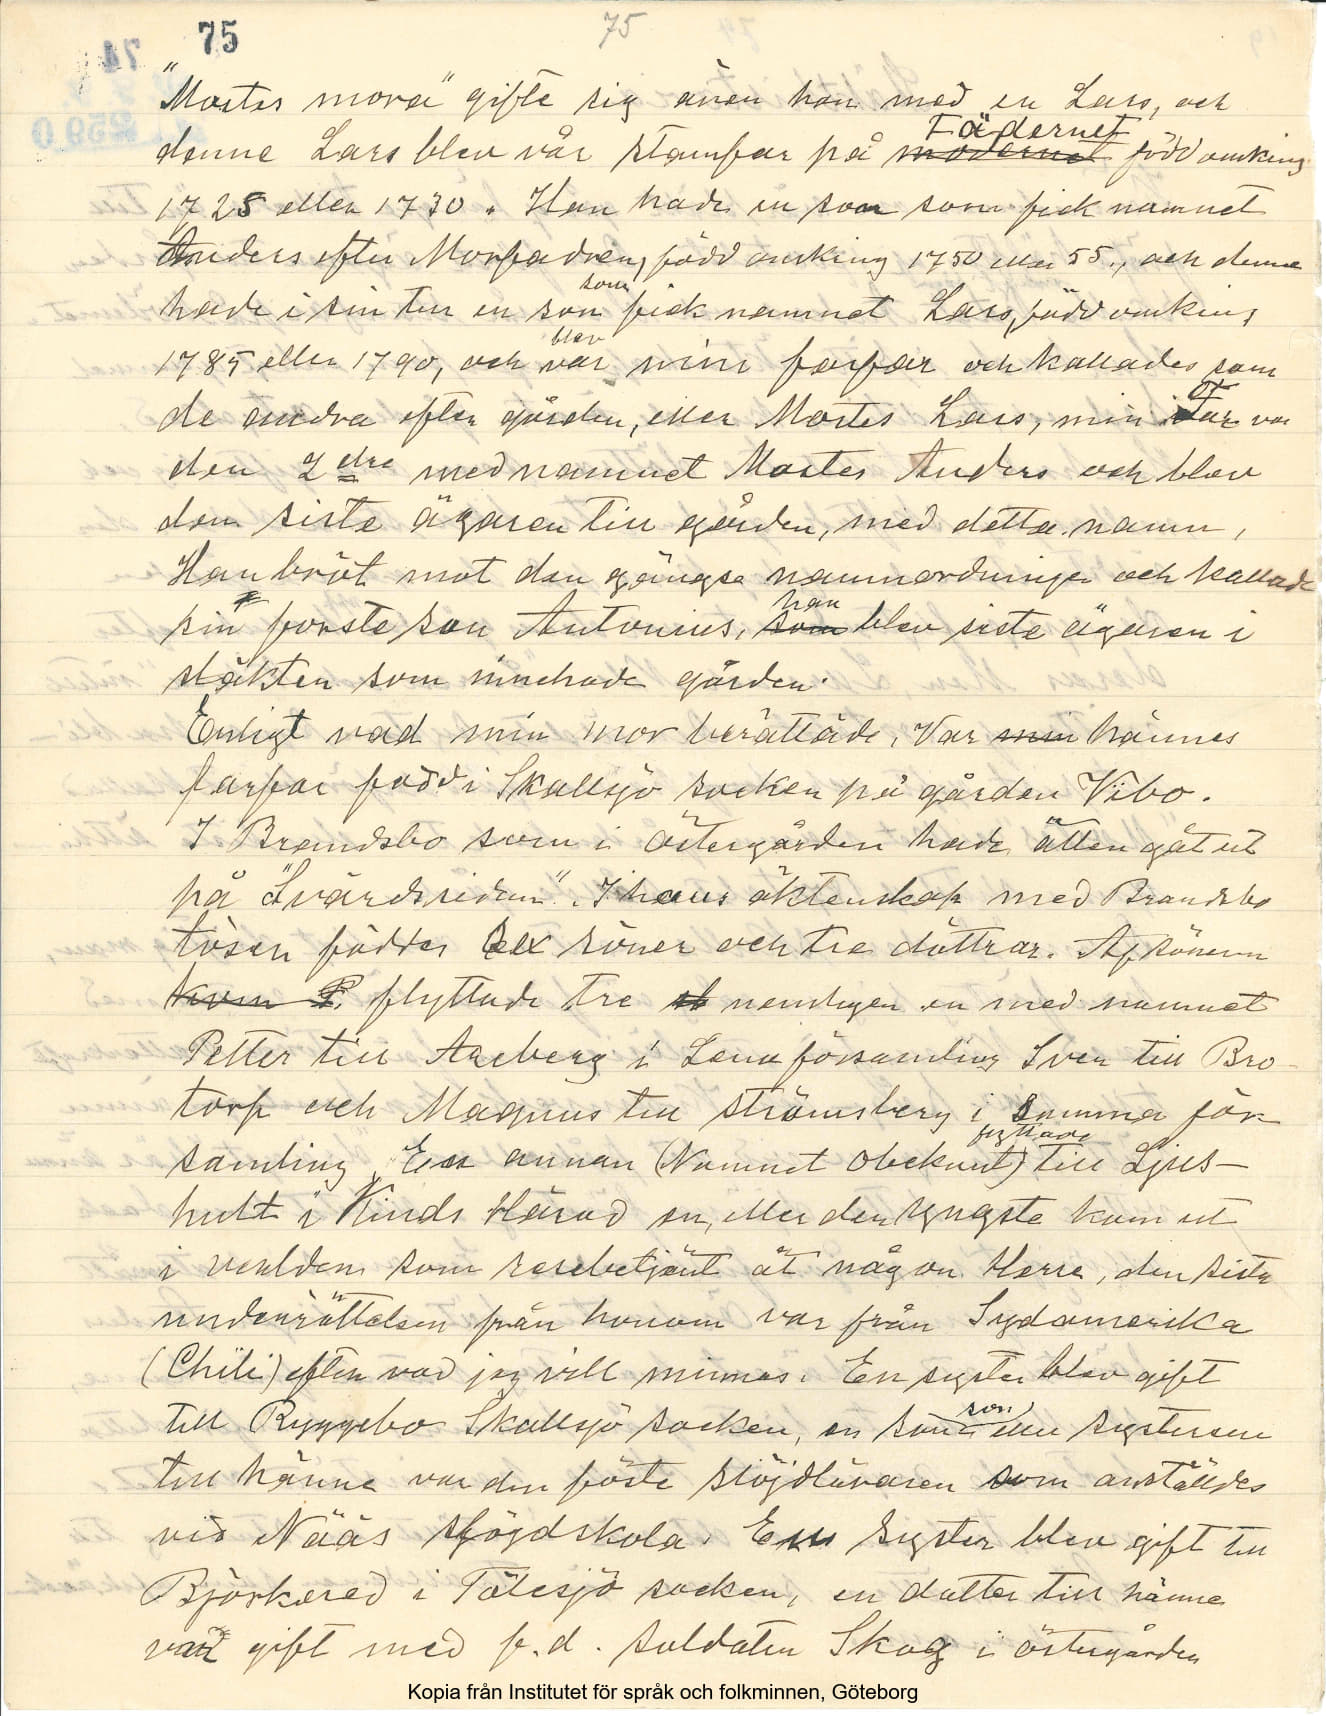 75 75
"Mostes mora" gifte sig även hon med en Lars, och
denne Lars blev vår stamfar på mödernet Fädernet född omkring
1725 eller 1730. Han hade en son som fick namnet
Anders efter Morfadren, född omkring 1750 eller 55., och denne
hade i sin tur en son som fick namnet Lars, född omkring
1785 eller 1790, och var blev min farfar och kallades som
de andra efter gården, eller Mostes Lars, min Far var
den 2dra med namnet Mostes Anders och blev
den siste ägaren till gården, med detta namn,
Han bröt mot den gängse namnordningen och kallade
sin forste son Antonius, som han blev siste ägaren i
släkten som innehade gården.
Enligt vad min mor berättade, Var min hännes
farfar född i Skallsjö socken på gården Vibo.
I Brandsbo som i östergården hade ätten gåt ut
på "Svärdsidan". I hans äktenskap med Brandsbo
tösen föddes sex söner och tre döttrar. Af sönerna
kom P. flyttade tre nemligen en med namnet
Petter till Areberg i Lena församling Sven till Bro-
torp och Magnus till Strömsberg i samma för
samling, En annan (Namnet obekant) flyttade till Ljus-
hult i Kinds Härad en, eller den yngste kom ut
i verlden som resebetjänt åt någon Herre, den sista
underrättelsen från honom var från Sydamerika
(Chili) efter vad jag vill minnas. En syster blev gift
till Ryggebo Skallsjö socken, en son eller systerson
till hänne var den föste slöjdläraren som anställdes
vid Nääs slöjdskola. En syster blev gift till
Björkered i Tölesjö socken, en dotter till hänne
var gift med f.d. soldaten Skog i östergården
Kopia från Institutet för språk och folkminnen, Göteborg